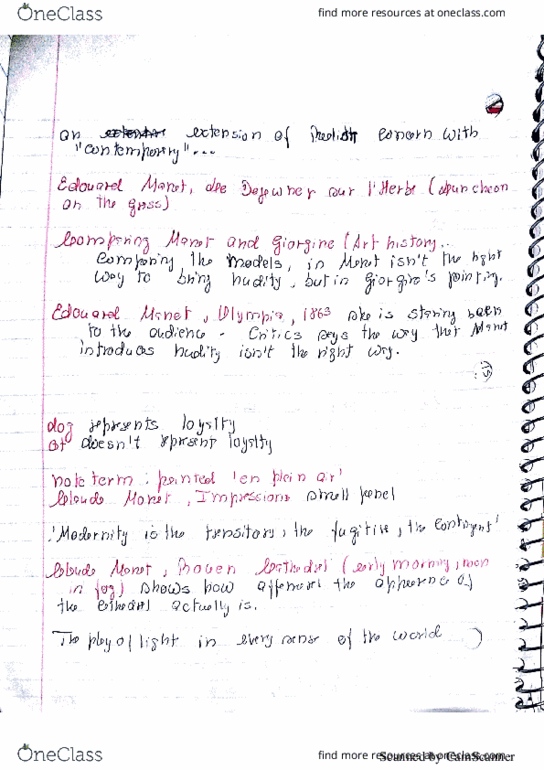 OneClass
find more resources at oneclass.com
an extension of Realist concern with
"contemporry"...
Edouard Manet, Dejeuner sur l'Herbe (a luncheon
on the grass)
Comparing Manet and Giorgine (Art history..
Comparing the models, in Manet isn't the right
way to bring nudity, but in Giorgire's painting.
Edouard Manet, Olympia, 1863 she is staring been
to the audience - Critics says the way that Manet
introduces nudity isn't the right way.
dog represents loyalty
cat doesn't represent loyalty
note term: painted 'en plein air'
Claude Monet, Impressions small panel
'Modernity is the transitory, the fugitive, the contingent'
Claude Monet, Rouen Cathedral (early morning, moon
in fog) shows how different the apperence of
the cathedral actually is.
The play of light in every sense of the world
OneClass
find more resources at oneclass.com
Scanned by CamScanner